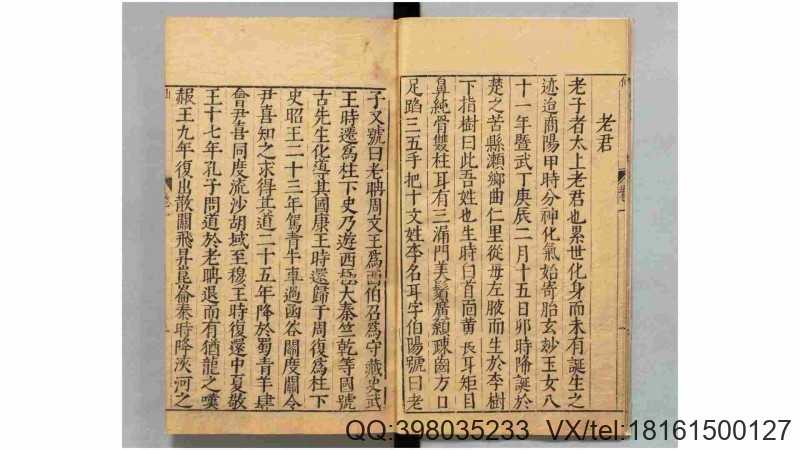 老君
老子者太上老君也累世化身而未有誕生之
迹迨商陽甲時分神化氣始寄胎玄妙玉女八
十一年暨武丁庚辰二月十五日卯時降誕於
楚之苦縣瀨鄉曲仁里從母左腋而生於李樹
下指樹曰此吾姓也生時白首面黃長耳矩目
鼻純骨雙柱耳有三漏門美鬚廣顙疎齒方口
足蹈三五手把十文姓李名耳字伯陽號曰老
子又號曰老聃周文王為西伯召為守藏史武
王時遷為柱下史乃遊西極大秦竺乾等國號
古先生化導其國康王時還歸于周復為柱下
史昭王二十三年駕青牛車過函谷關度關令
尹喜知之求得其道二十五年降於蜀青羊肆
會尹喜同度流沙胡域至穆王時復還中夏敬
王十七年孔子問道於老聃退而有猶龍之嘆
赧王九年復出散關飛昇崑崙秦時降陝河之
QQ:398035233 VX/tel:18161500127